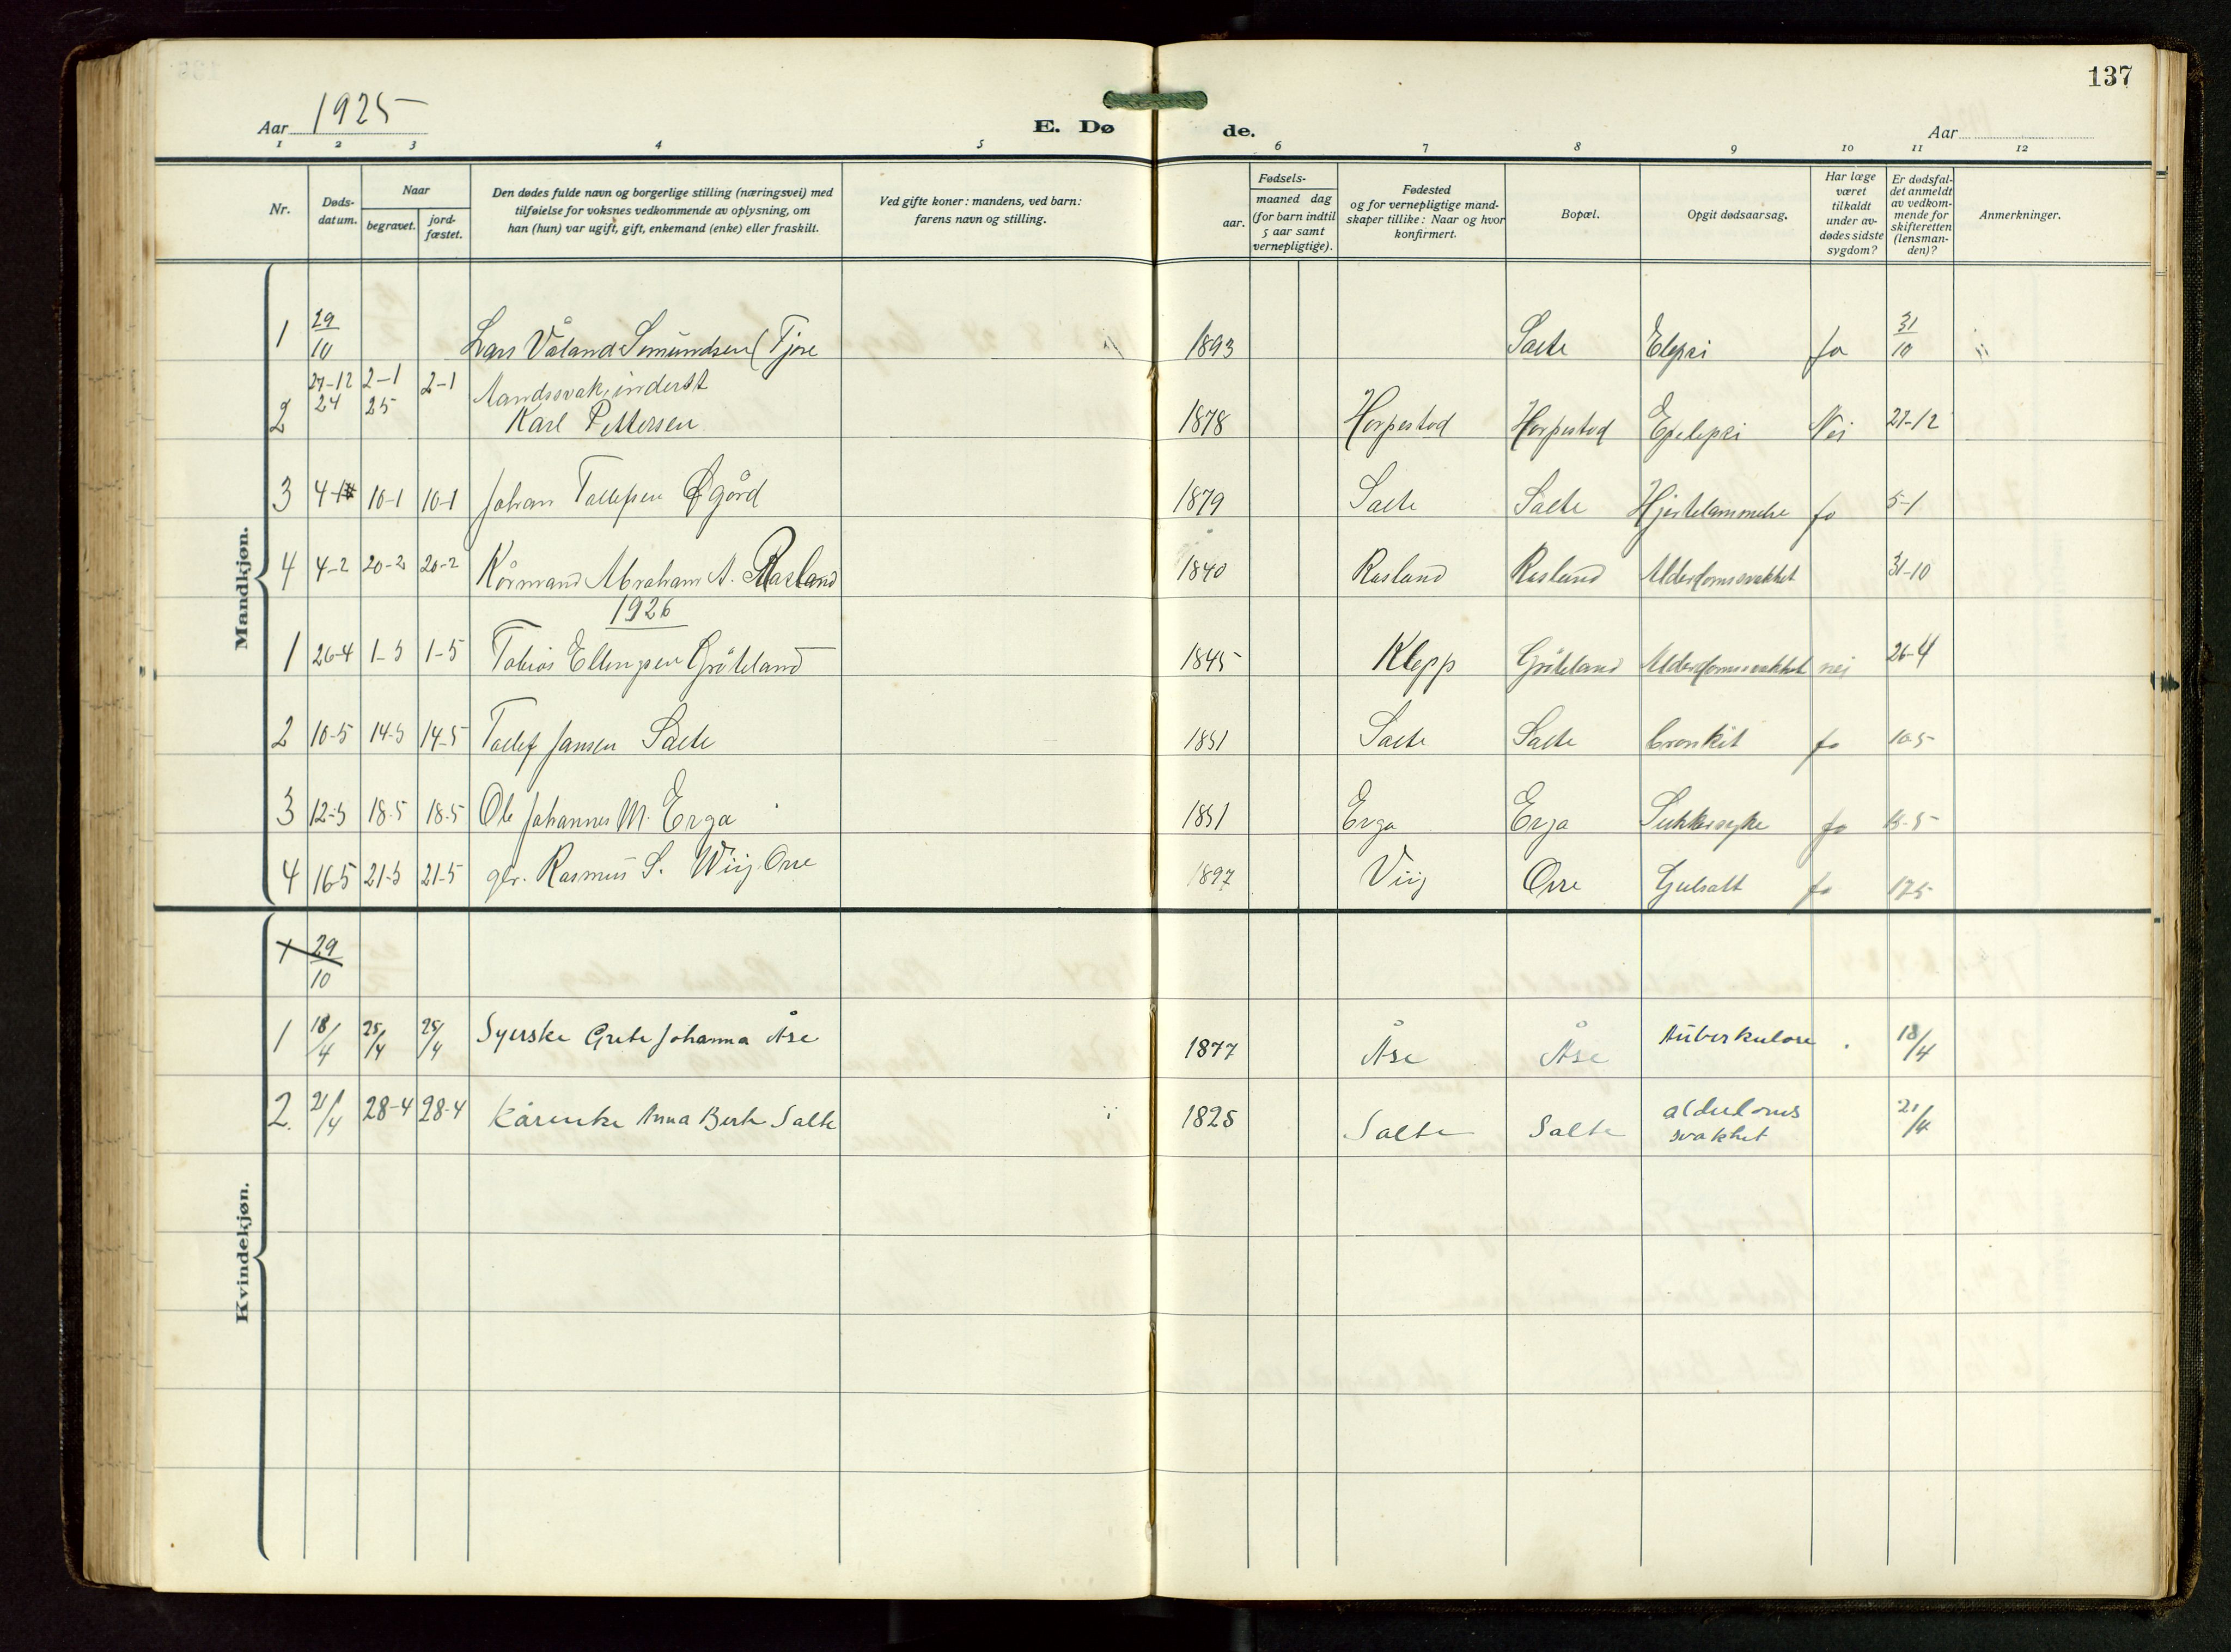 137
Aar 1925
E. Dø de.
Aar
1 2 3 4 5 6 7 8 9 10 11 12
Nr.
Døds-datum.
Naar
begravet.
jord-fæstet.
Den dødes fulde navn og borgerlige stilling (næringsvei) med
tilføielse for voksnes vedkommende av oplysning, om
han (hun) var ugift, gift, enkemand (enke) eller fraskilt.
Ved gifte koner: mandens, ved barn:
farens navn og stilling.
Fødsels-
aar.
maaned dag
(for barn indtil
5 aar samt
vernepligtige).
Fødested
og for vernepligtige mand-
skaper tillike: Naar og hvor
konfirmert.
Bopæl.
Opgit dødsaarsag.
Har læge
været
tilkaldt
under av-
dødes sidste
sygdom?
Er dødsfal-
det anmeldt
av vedkom-
mende for
skifteretten
(lensman-
den)?
Anmerkninger.
Mandkjøn.
1 29/10 Lars Våland Semundsen (Tjøre 1893 Salte Elepsi Ja 31/10
2 27-12 24 2-1 25 2-1 Aandssvak, inderst
Karl Pettersen 1878 Horpestad Horpestad Epelepsi Nei 27-12
3 4-1 10-1 10-1 Johan Tollefsen Øgård 1879 Salte Salte Hjertelammelse Ja 5-1
4 4-2 20-2 20-2 Kårmand Abraham A. Rasland 1840 Rasland Rasland Alderdomssvakhet 31-10
1926
1 26-4 1-5 1-5 Tobias Ellingsen Gröteland 1845 Klepp Gröteland Alderdomssvakhet nei 26-4
2 10-5 14-5 14-5 Tollef Jansen Salte 1851 Salte Salte bronkit Ja 10-5
3 12-5 18-5 18-5 Ole Johannes M. Erga 1851 Erga Erga Sukkersyke Ja
4 16-5 21-5 21-5 gbr. Rasmus S. Wiig Orre 1897 Viig Orre Ja 17-5
Kvindekjøn.
1 29/10
1 18/4 25/4 25/4 Syerske Grete Johanna Åse 1877 Åse Åse Tuberkulose 18/4
2. 21/4 28-4 28-4 Kårenke Anna Berte Salte 1825 Salte Salte alderdoms
svakhet 21/4